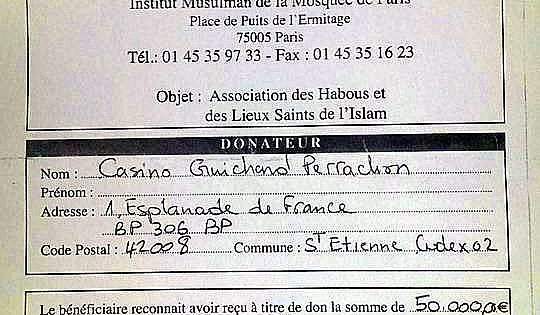 Institut Musulman de la Mosquée de Paris
Place de Puits de l'Ermitage
75005 Paris
Tél.: 01 45 35 97 33 - Fax : 01 45 35 16 23
Objet : Association des Habous et
des Lieux Saints de l'Islam
DONATEUR
Nom : Casino Guichard Perrachon
Prénom :
Adresse : 1, Esplanade de France
BP 306 BP
Code Postal : 42008 Commune : St Etienne Cedex 02
Le bénéficiaire reconnait avoir reçu à titre de don la somme de 50.000,00€